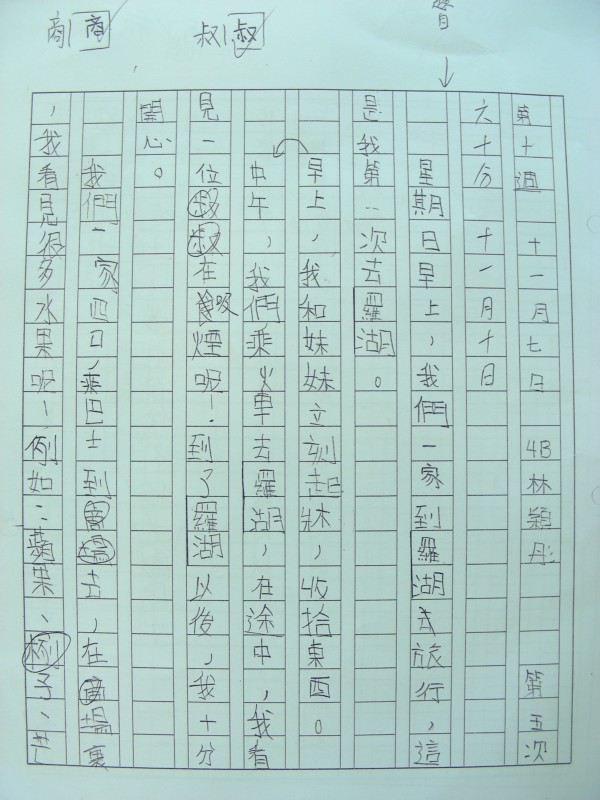 叔叔
商商
第十週 十一月七日 4B林穎彤 第五次
六十分 十一月十日
星期日早上，我們一家到羅湖去旅行，這
是我第一次去羅湖。
早上，我和妹妹立刻起牀，收拾東西。
中午，我們乘火車去羅湖，在途中，我看
見一位叔叔在吸煙呢！到了羅湖以後，我十分
開心。
我們一家四口，乘巴士到商場去，在商場裏
，我看見很多水果呢！例如：蘋果、栵子、芒